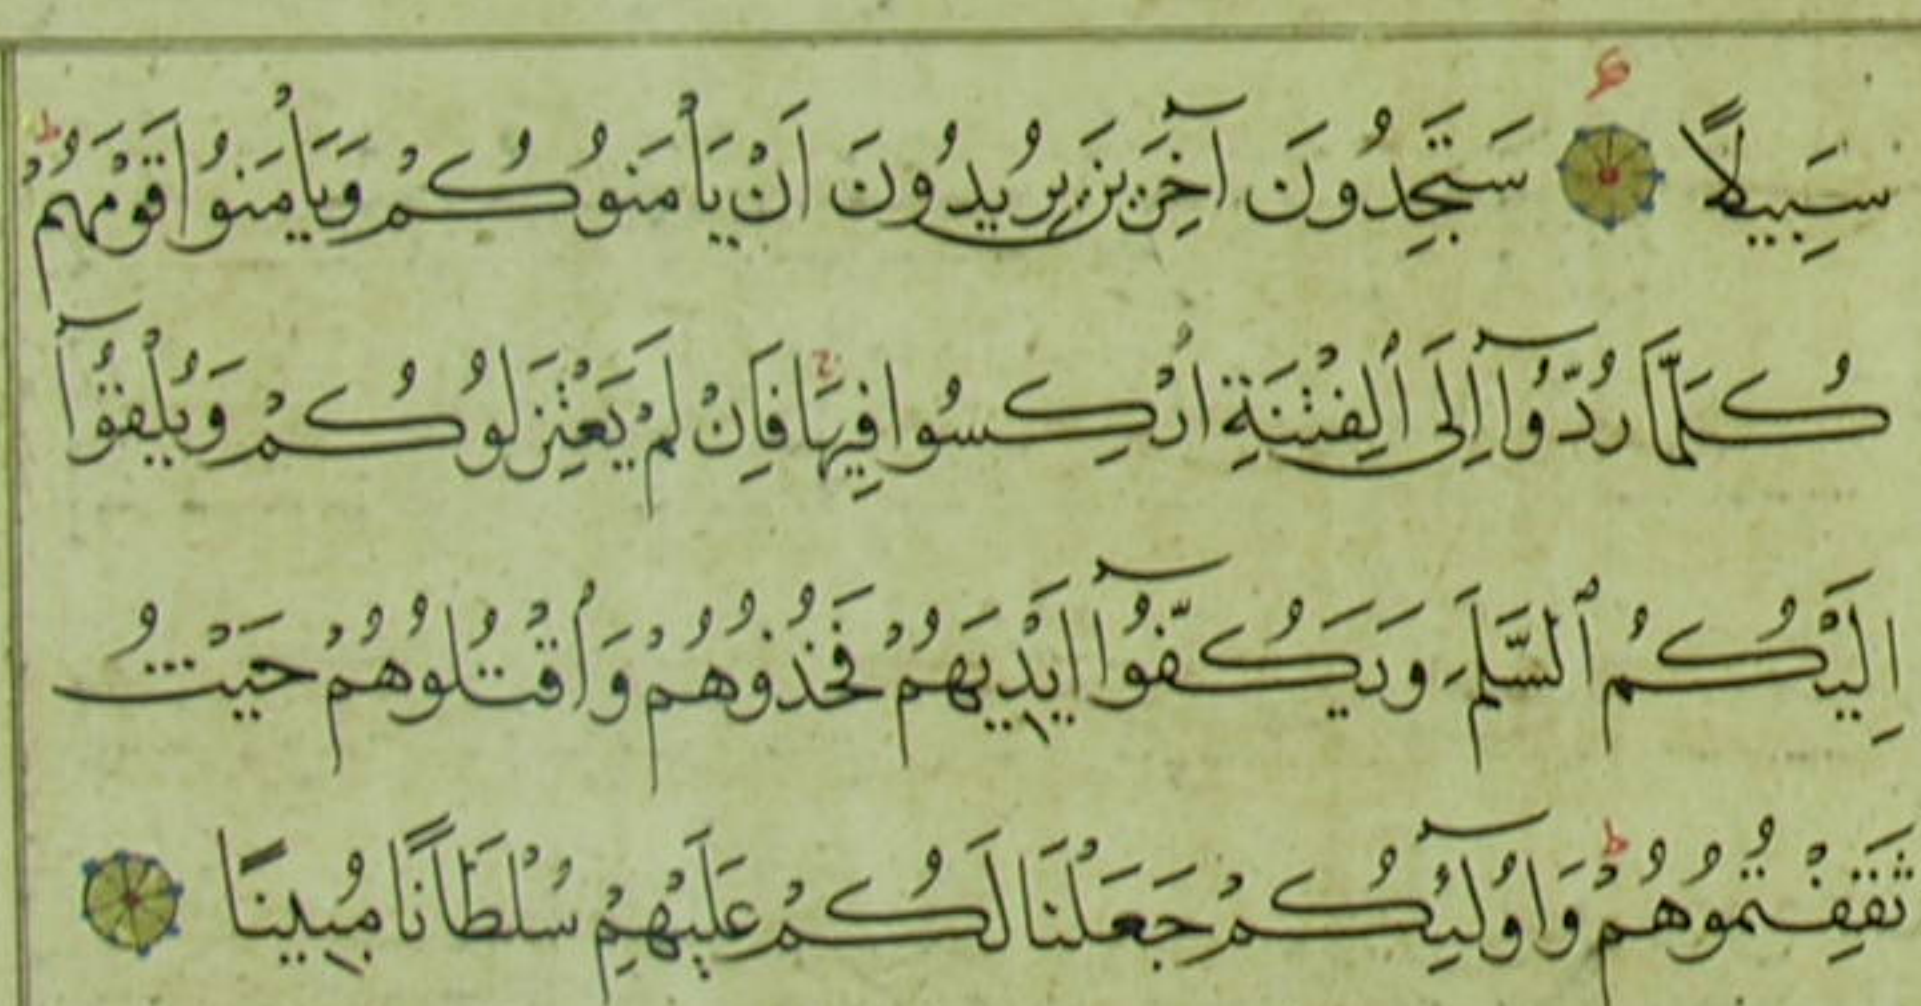 سَبِيلًا ۝ سَتَجِدُونَ آخَرِينَ يُرِيدُونَ اَنْ يَأْمَنُوكُمْ وَيَأْمَنُوا قَوْمَهُمْ ط
كُلَّمَا رُدُّوٓا اِلَى ٱلْفِتْنَةِ اُرْكِسُوا فِيهَا ج فَاِنْ لَمْ يَعْتَزِلُوكُمْ وَيُلْقُوٓا
اِلَيْكُمُ ٱلسَّلَمَ وَيَكُفُّوٓا اَيْدِيَهُمْ فَخُذُوهُمْ وَاُقْتُلُوهُمْ حَيْثُ
ثَقِفْتُمُوهُمْ ط وَاُولٰٓئِكُمْ جَعَلْنَا لَكُمْ عَلَيْهِمْ سُلْطَانًا مُبِينًا ۝